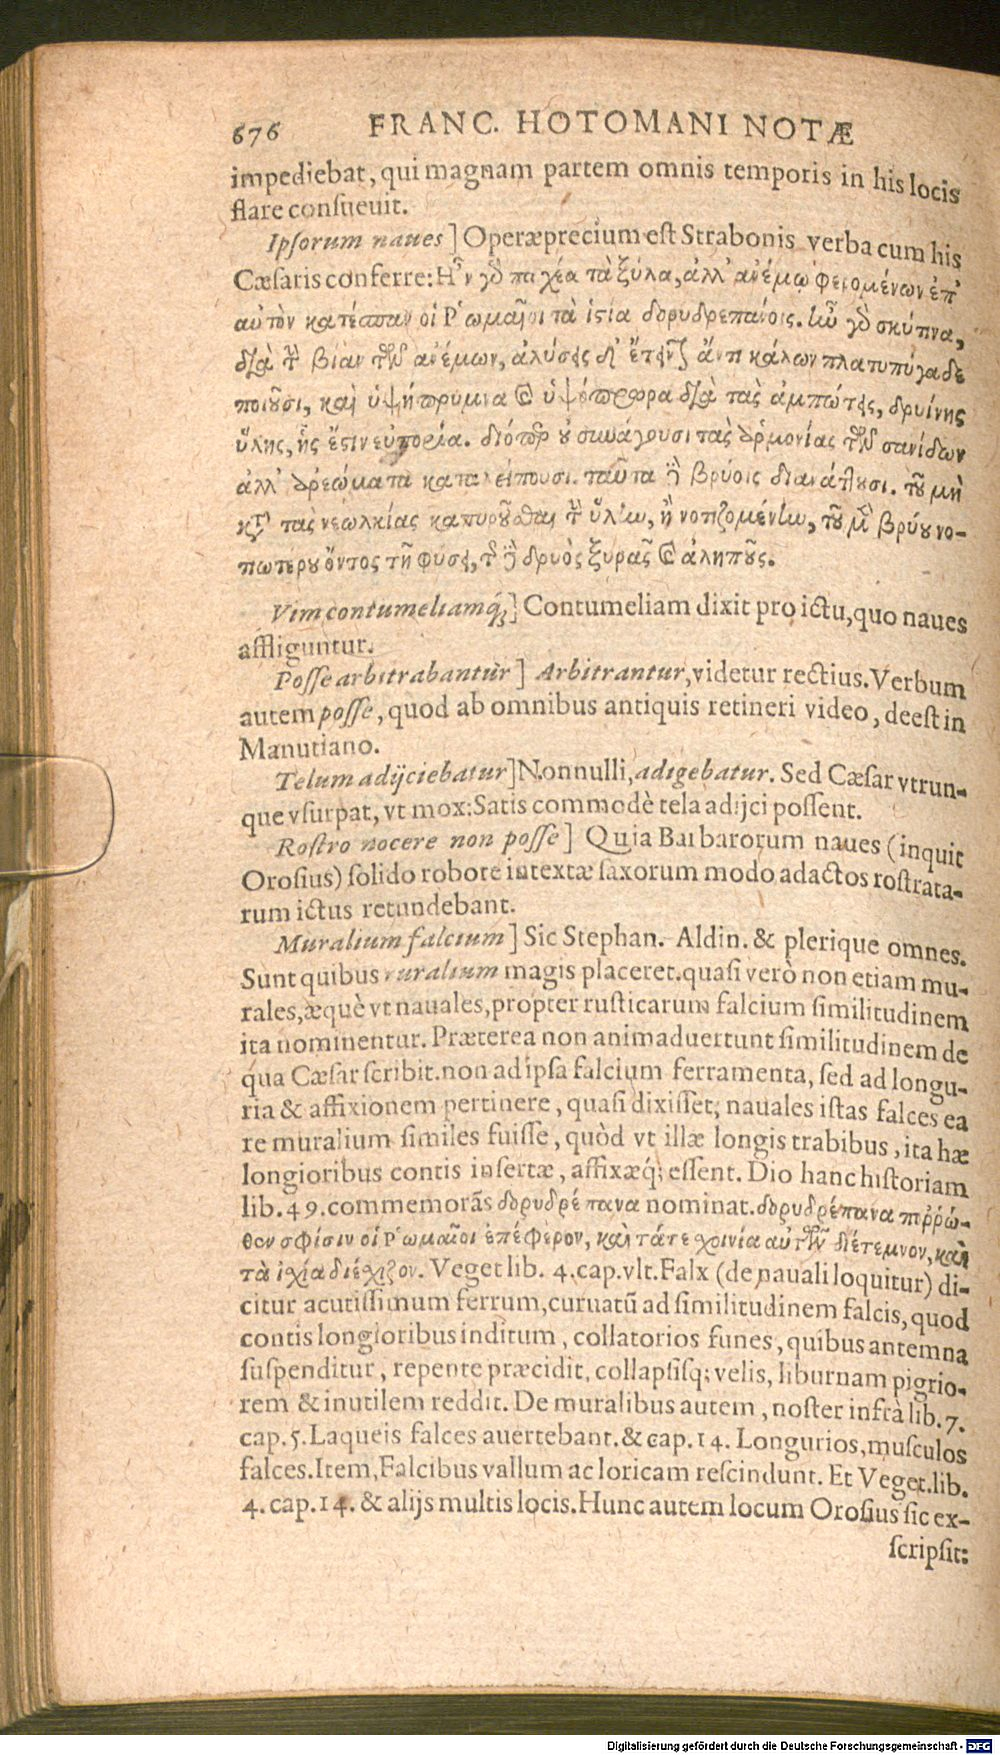 676 FRANC. HOTOMANI NOTÆ
impediebat, qui magnam partem omnis temporis in his locis
flare consueuit.
Ipsorum naues] Operæprecium est Strabonis verba cum his
Cæsaris conferre: Ην γὸ παχέα τὰ ξύλα, ἀλλ' ἀνέμῳ φερομένων ἐπ'
αὐτὸν κατέσπων οἱ Ῥωμαῖοι τὰ ἱστία δορυδρεπάνοις.
διὰ τ βίαν τῶν ἀνέμων, ἀλύσεις δ' ἔτεινον ἀντὶ κάλων πλατυπύγα δὲ
ποιοῦσι, καὶ ὑψήπρυμνα καὶ ὑψόπρωρα διὰ τὰς ἀμπώτεις, δρυίνης
ὕλης, ἧς ἔστιν εὐπορία. διόπερ οὐ συνάγουσι τὰς ἁρμονίας τῶν σανίδων
ἀλλ' ἀρεώματα καταλείπουσι. ταῦτα δὲ βρύοις διανάττουσι. τοῦ μὴ
κτ τὰς νεωλκίας καπυροῦσθαι τ ὕλην, μὴ νοτιζομένην, τοῦ μ βρύου νο-
τιωτέρου ὄντος τῇ φύσει, τ δὲ δρυὸς ξυρᾶς καὶ ἀλιποῦς.
Vim contumeliamq́;] Contumeliam dixit pro ictu, quo naues
affliguntur.
Posse arbitrabantur] Arbitrantur, videtur rectius. Verbum
autem posse, quod ab omnibus antiquis retineri video, deest in
Manutiano.
Telum adijciebatur] Nonnulli, adigebatur. Sed Cæsar vtrun-
que vsurpat, vt mox: Satis commodè tela adijci possent.
Rostro nocere non posse] Quia Barbarorum naues (inquit
Orosius) solido robore intextæ saxorum modo adactos rostrata-
rum ictus retundebant.
Muralium falcium] Sic Stephan. Aldin. & plerique omnes.
Sunt quibus ruralium magis placeret. quasi verò non etiam mu-
rales, æquè vt nauales, propter rusticarum falcium similitudinem
ita nominentur. Præterea non animaduertunt similitudinem de
qua Cæsar scribit. non ad ipsa falcium ferramenta, sed ad longu-
ria & affixionem pertinere, quasi dixisset; nauales istas falces ea
re muralium similes fuisse, quòd vt illæ longis trabibus, ita hæ
longioribus contis insertæ, affixæq́; essent. Dio hanc historiam
lib. 49. commemorãs δορυδρέπανα nominat. δορυδρέπανα πόρρω-
θεν σφίσιν οἱ Ῥωμαῖοι ἐπέφερον, καὶ τά τε χοινία αὐτῶν διέτεμνον, καὶ
τὰ ἱστία διέσχιζον. Veget lib. 4. cap. vlt. Falx (de nauali loquitur) di-
citur acutissimum ferrum, curuatũ ad similitudinem falcis, quod
contis longioribus inditum, collatorios funes, quibus antemna
suspenditur, repente præcidit, collapsisq; velis, liburnam pigrio-
rem & inutilem reddit. De muralibus autem, noster infrà lib. 7.
cap. 5. Laqueis falces auertebant. & cap. 14. Longurios, musculos
falces. Item, Falcibus vallum ac loricam rescindunt. Et Veget. lib.
4. cap. 14. & alijs multis locis. Hunc autem locum Orosius sic ex-
scripsit:
Digitalisierung gefördert durch die Deutsche Forschungsgemeinschaft - DFG